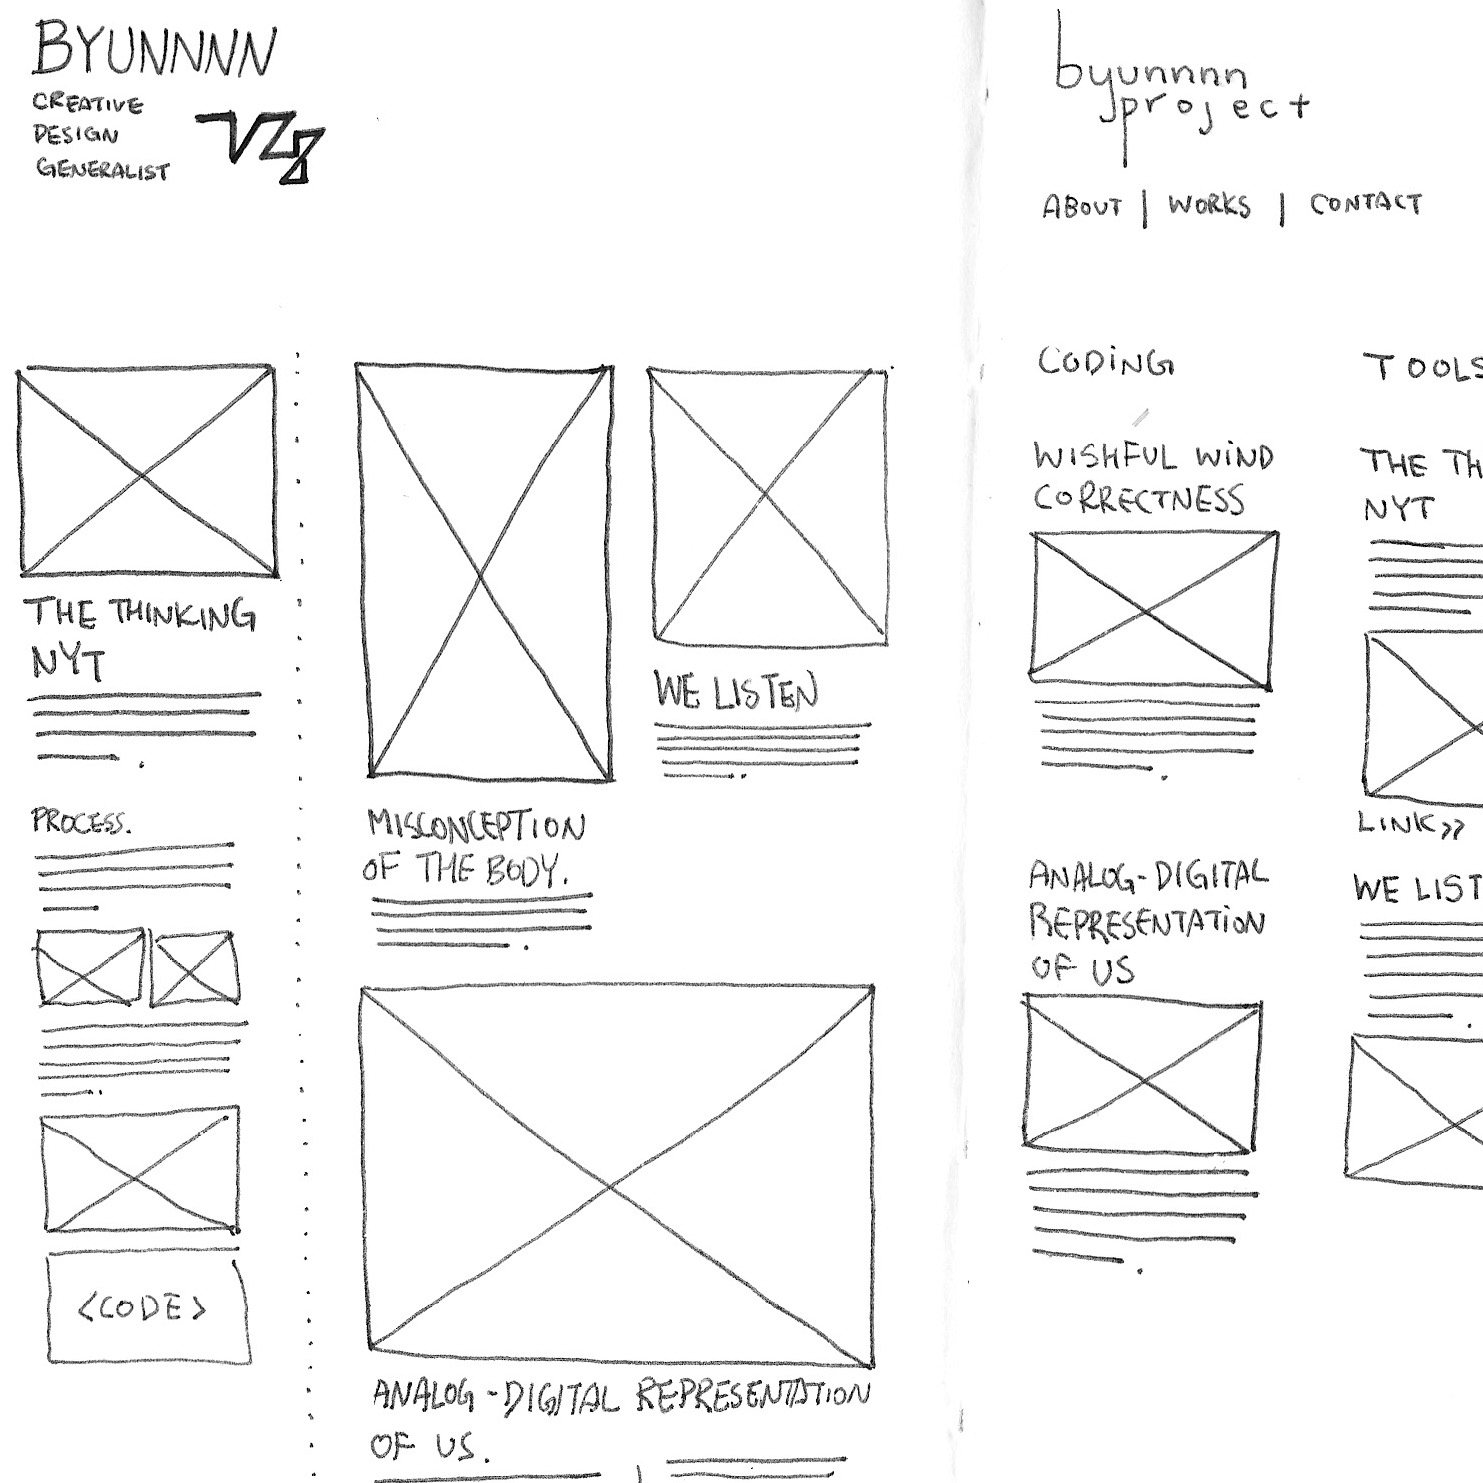 BYUNNNN
CREATIVE
DESIGN
GENERALIST
THE THINKING
NYT
PROCESS.
<CODE>
MISCONCEPTION
OF THE BODY.
WE LISTEN
ANALOG-DIGITAL REPRESENTATION
OF US.
byunnnn
project
ABOUT | WORKS | CONTACT
CODING
WISHFUL WIND
CORRECTNESS
ANALOG-DIGITAL
REPRESENTATION
OF US
TOOLS
THE TH
NYT
LINK>>
WE LIST